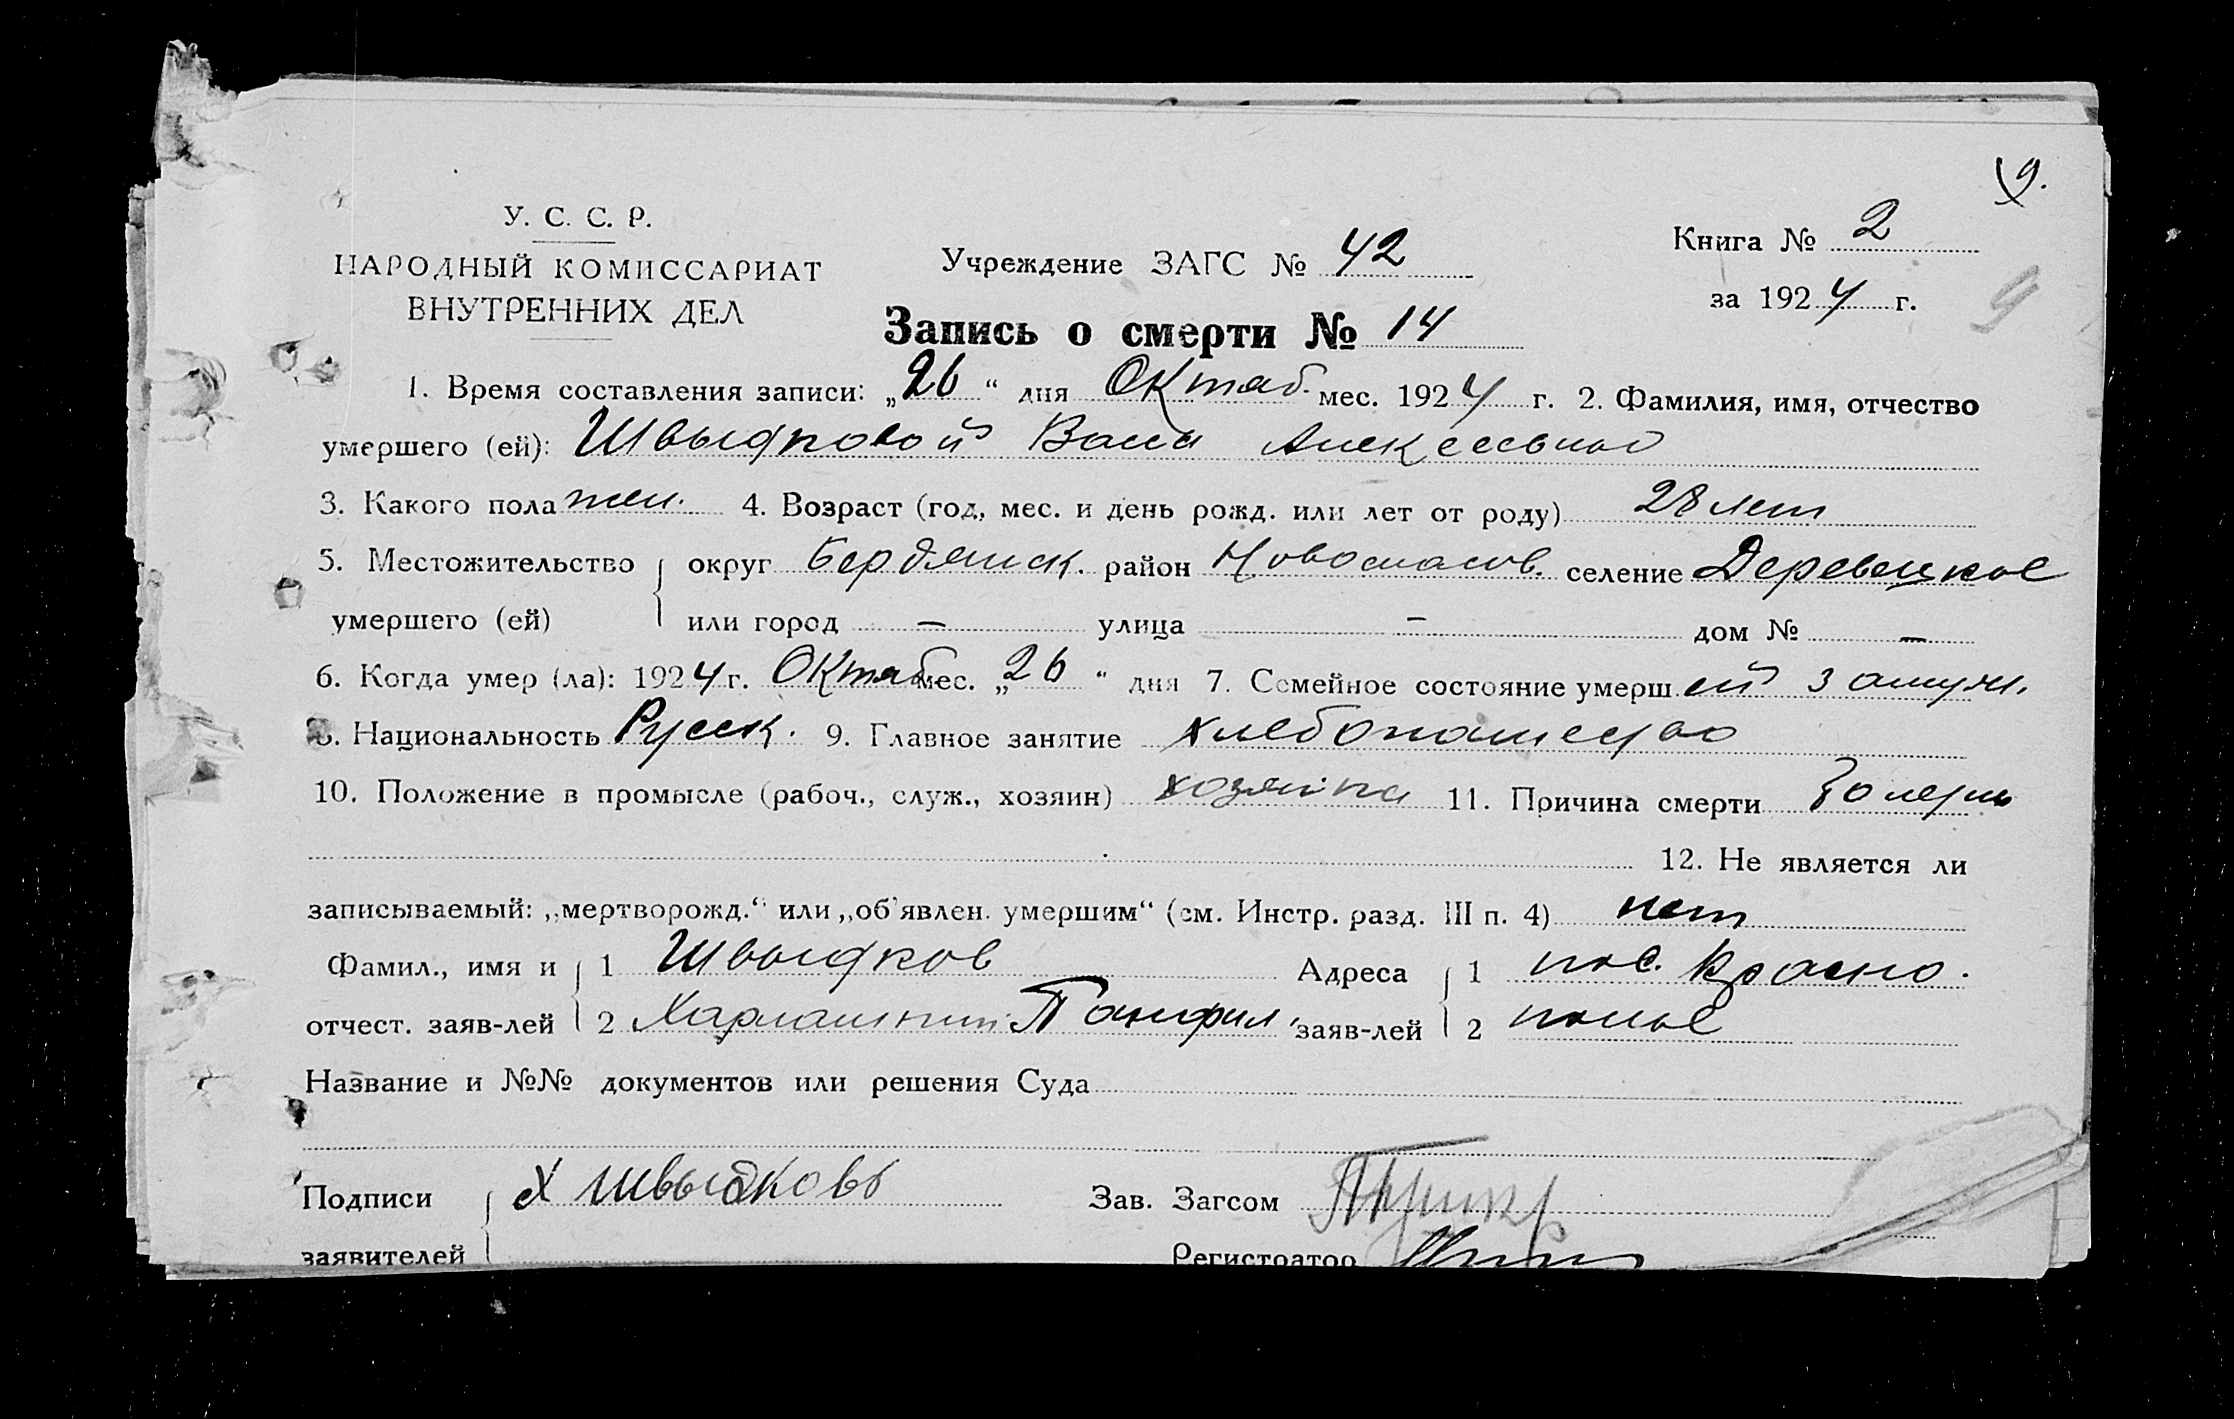 9.
У. С. С. Р.
НАРОДНЫЙ КОМИССАРИАТ
ВНУТРЕННИХ ДЕЛ
Учреждение ЗАГС № 42
Книга № 2
за 1924 г.
9
Запись о смерти № 14
1. Время составления записи: „26“ дня Октяб. мес. 1924 г. 2. Фамилия, имя, отчество
умершего (ей): Швыдковой Алексеевны
3. Какого пола жен. 4. Возраст (год, мес. и день рожд. или лет от роду) 28 лет
5. Местожительство округ Бердянск. район Новоспасов. селение Деревецкое
умершего (ей) или город — улица — дом № —
6. Когда умер (ла): 1924 г. Октяб. мес. „26“ дня 7. Семейное состояние умерш ей замуж.
8. Национальность Русск. 9. Главное занятие хлебопашество
10. Положение в промысле (рабоч., служ., хозяин) хозяйка 11. Причина смерти
12. Не является ли
записываемый: „мертворожд.“ или „об'явлен. умершим“ (см. Инстр. разд. III п. 4) нет
Фамил., имя и 1 Швыдков Адреса 1 пос. Красно.
отчест. заяв-лей 2 Харлампий Панфил. заяв-лей 2 полье
Название и №№ документов или решения Суда
Подписи Х Швыдковъ Зав. Загсом
заявителей Регистратор